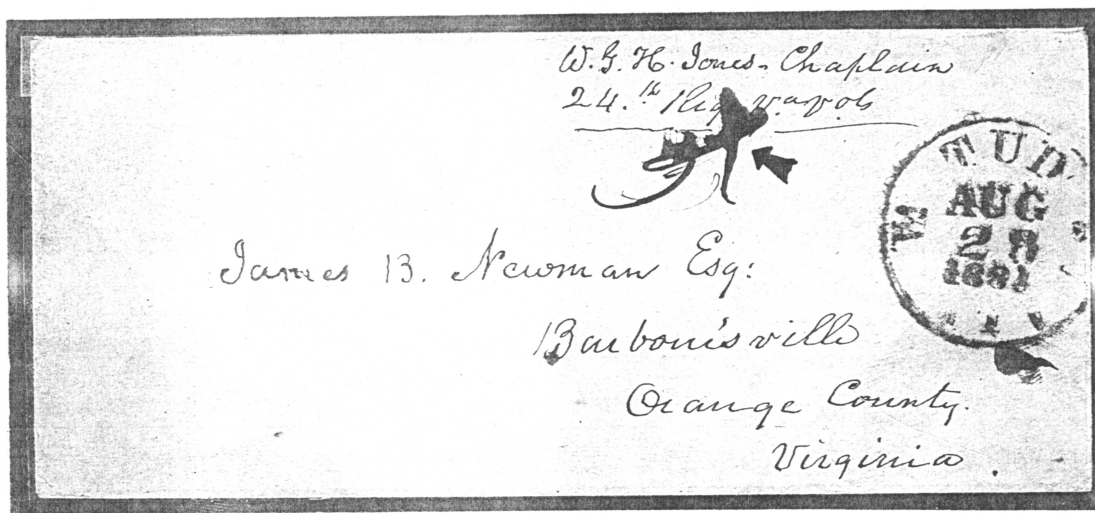 W. G. H. Jones - Chaplain
24.th Reg. va vols
TUD
AUG
28
1861
James B. Newman Esq:
Barbouisville
Orange County.
Virginia.